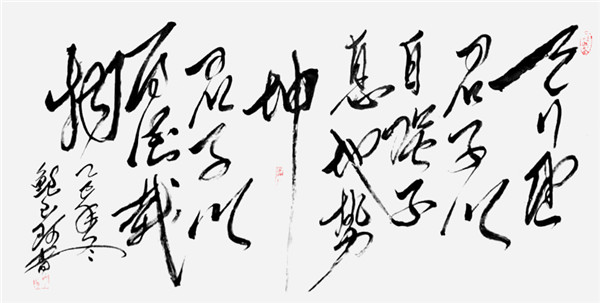 天行健
君子以
自强不
息地势
坤
君子以
厚德载
物
乙巳年冬
书